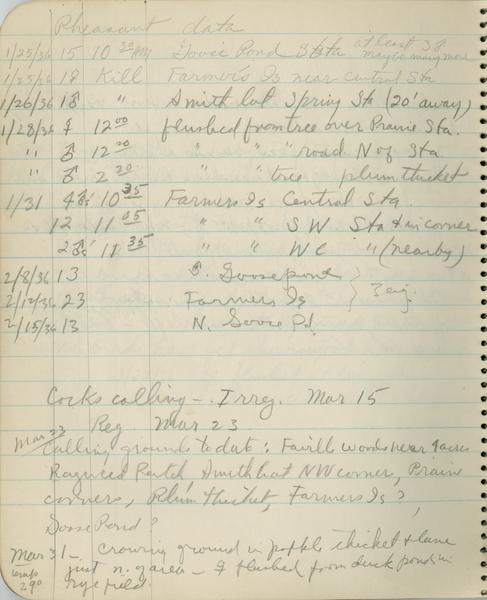 Pheasant data
1/25/36 15 10 30 AM Goose Pond Sta at least 38
maybe many more
1/25/36 18 Kill Farmer's Is near Central Sta
1/26/36 1♂ " Smith lat Spring Sta (20' away)
1/28/36 ♀ 12 00 flushed from tree over Prairie Sta.
" ♂ 12 20 " " " road N of Sta
" ♂ 2 20 " " tree plum thicket
1/31 4♂s 10 35 Farmers Is Central Sta
12 11 05 " " SW Sta & in corner
2♂s 11 35 " " WC " (nearby)
2/8/36 13 Goosepond
2/12/36 23 Farmers Is
2/15/36 13 N. Goose Pd.
Cocks calling - Irreg. Mar 15
Reg Mar 23
Mar 23
Calling grounds to date: Faville Woods near 4 acres
Ragweed Patch, Smith lat NW corner, Prairie
corners, Plum thicket, Farmers Is?,
Goose Pond?
Mar 31 - Crowing ground in popple thicket & lane
just n. of area - ♀ flushed from duck pond in
temp
29°
rye field.